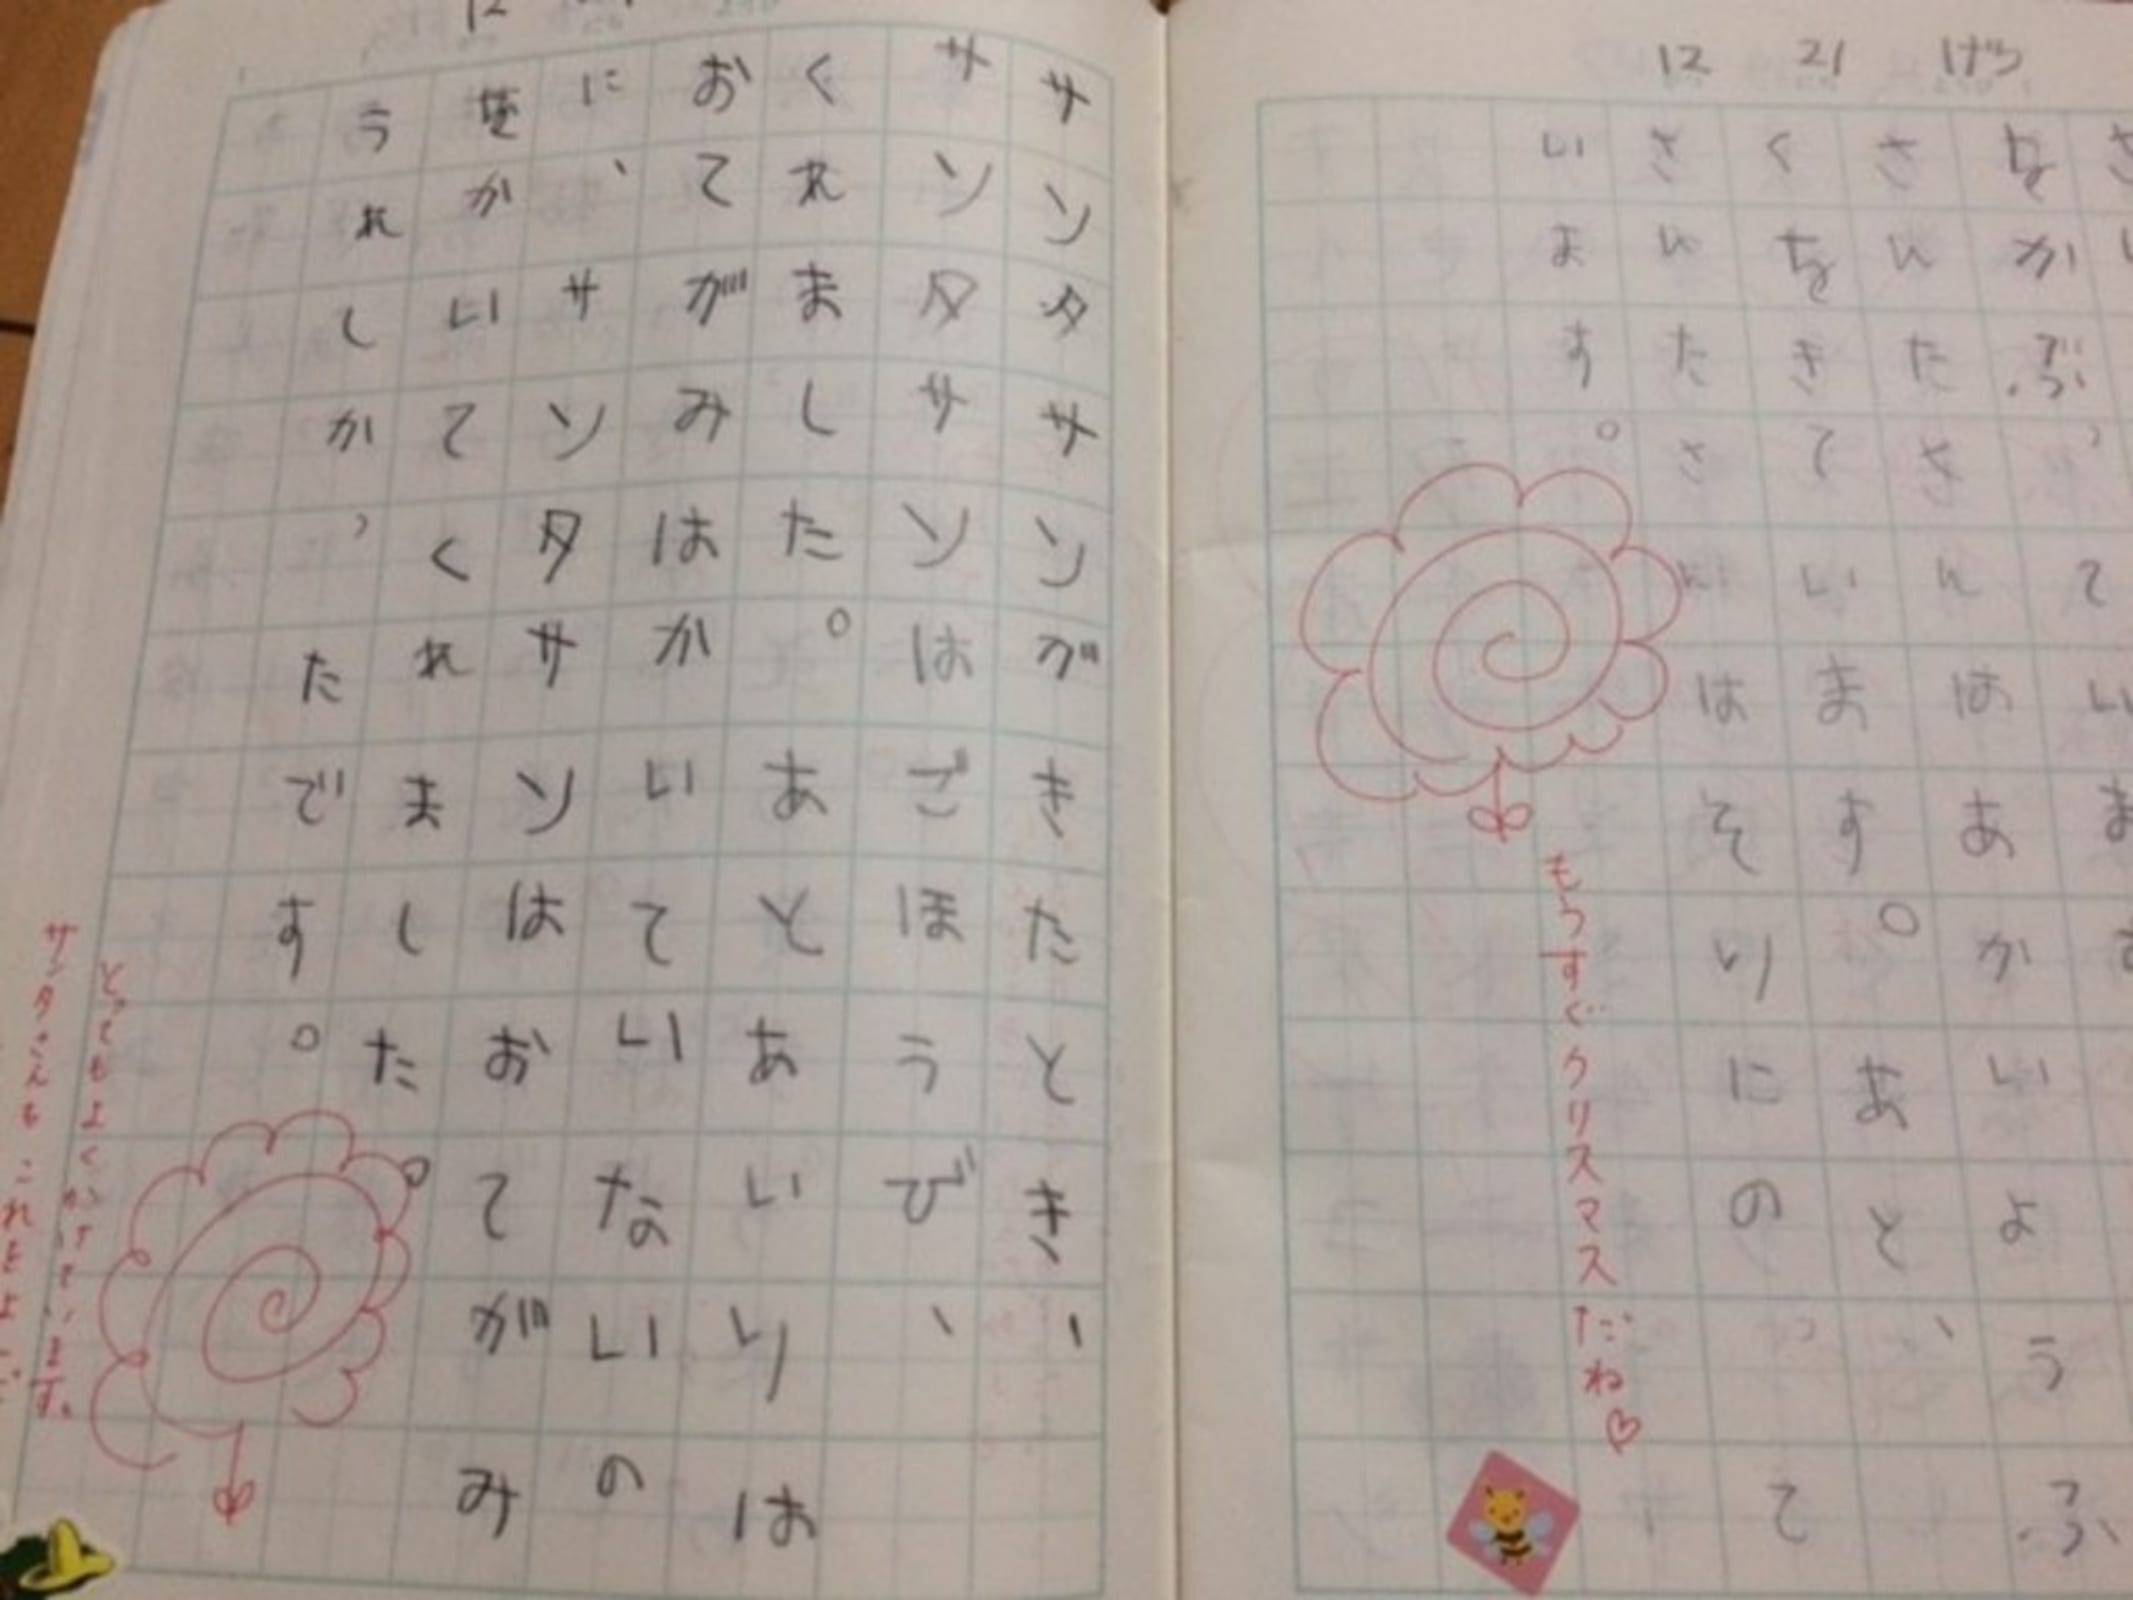 12 21 げつ
をかぶっています
さんたさんはあかいようふ
くをきています。あと、
さんたさんはそりにのって
います。
もうすぐクリスマスだね♡
12
サンタサンがきたとき、
サンタサンはごほうび、
くれました。あとあいりは
おてがみはかいていないの
に、サンタサンはおてがみ
をかいてくれました。
うれしかったです。
とってもよくかけています。
サンタさんも これを